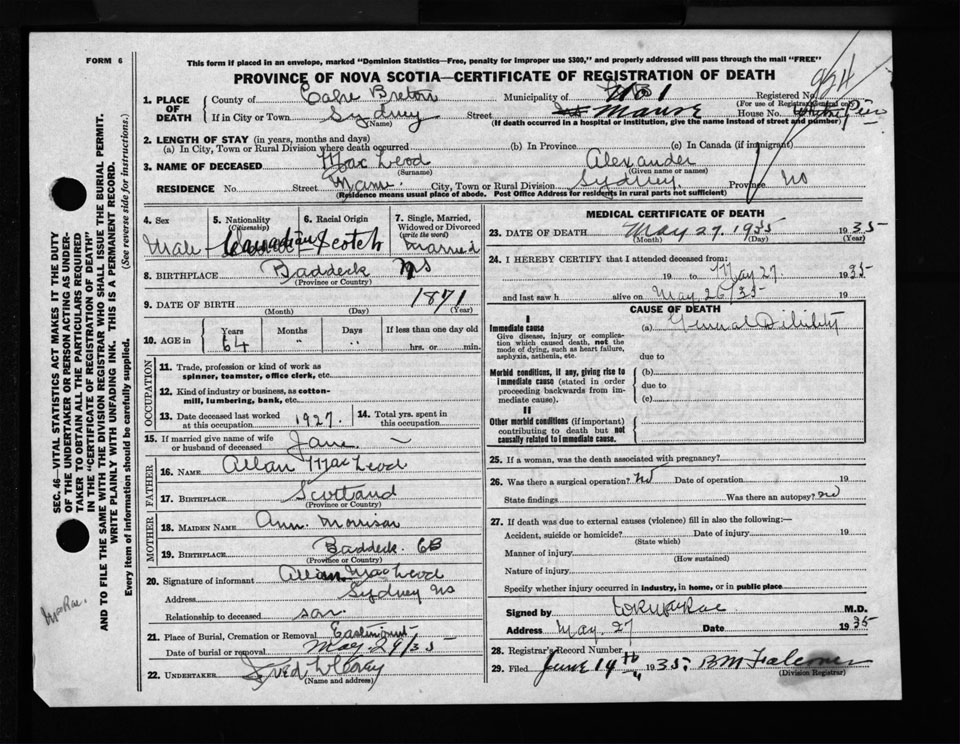 FORM 6
This form if placed in an envelope, marked "Dominion Statistics—Free, penalty for improper use $300," and properly addressed will pass through the mail "FREE"
PROVINCE OF NOVA SCOTIA—CERTIFICATE OF REGISTRATION OF DEATH
934
1. PLACE OF DEATH County of Cape Breton Municipality of No 1 Registered No.
(For use of Registrar General only)
If in City or Town Sydney (Name) Street House No.
(If death occurred in a hospital or institution, give the name instead of street and number)
2. LENGTH OF STAY (in years, months and days)
(a) In City, Town or Rural Division where death occurred (b) In Province (c) In Canada (if immigrant)
3. NAME OF DECEASED MacLeod (Surname) Alexander (Given name or names)
RESIDENCE No. Street City, Town or Rural Division Sydney Province NS
(Residence means usual place of abode. Post Office Address for residents in rural parts not sufficient)
4. Sex Male
5. Nationality (Citizenship) Canadian
6. Racial Origin Scotch
7. Single, Married, Widowed or Divorced (write the word) Married
8. BIRTHPLACE Baddeck NS
(Province or Country)
9. DATE OF BIRTH 1871
(Month) (Day) (Year)
10. AGE in Years 64 Months " Days " If less than one day old hrs. or min.
OCCUPATION
11. Trade, profession or kind of work as spinner, teamster, office clerk, etc.
12. Kind of industry or business, as cotton-mill, lumbering, bank, etc.
13. Date deceased last worked at this occupation 1927.
14. Total yrs. spent in this occupation
15. If married give name of wife or husband of deceased Jane
FATHER
16. NAME Allan MacLeod
17. BIRTHPLACE Scotland
(Province or Country)
MOTHER
18. MAIDEN NAME Ann Morrison
19. BIRTHPLACE Baddeck. CB
(Province or Country)
20. Signature of informant Allan MacLeod
Address Sydney NS
Relationship to deceased son
21. Place of Burial, Cremation or Removal
Date of burial or removal May 29/35
22. UNDERTAKER Fred
(Name and address)
MEDICAL CERTIFICATE OF DEATH
23. DATE OF DEATH May 27. 1935 1935
(Month) (Day) (Year)
24. I HEREBY CERTIFY that I attended deceased from:
19 to May 27 1935
and last saw h alive on May 26/35 19
CAUSE OF DEATH
I
Immediate cause
Give disease, injury or complication which caused death, not the mode of dying, such as heart failure, asphyxia, asthenia, etc.
(a) General Dibility
due to
Morbid conditions, if any, giving rise to immediate cause (stated in order proceeding backwards from immediate cause).
(b)
due to
(c)
II
Other morbid conditions (if important) contributing to death but not causally related to immediate cause.
25. If a woman, was the death associated with pregnancy?
26. Was there a surgical operation? no Date of operation 19
State findings Was there an autopsy? no
27. If death was due to external causes (violence) fill in also the following:—
Accident, suicide or homicide? Date of injury 19
(State which)
Manner of injury
(How sustained)
Nature of injury
Specify whether injury occurred in industry, in home, or in public place
Signed by M.D.
Address May. 27 Date 1935
28. Registrar's Record Number
29. Filed June 14th 1935. BM Falconer
(Division Registrar)
SEC. 46—VITAL STATISTICS ACT MAKES IT THE DUTY
OF THE UNDERTAKER OR PERSON ACTING AS UNDER-
TAKER TO OBTAIN ALL THE PARTICULARS REQUIRED
IN THE "CERTIFICATE OF REGISTRATION OF DEATH"
AND TO FILE THE SAME WITH THE DIVISION REGISTRAR WHO SHALL ISSUE THE BURIAL PERMIT.
WRITE PLAINLY WITH UNFADING INK. THIS IS A PERMANENT RECORD.
Every item of information should be carefully supplied. (See reverse side for instructions.)
MacRae.